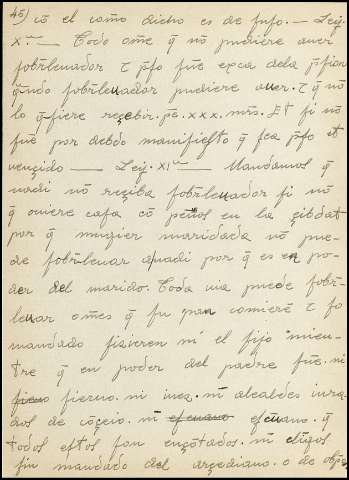 45) cō el como dicho es de suso. — Ley.
X.ᵃ — Todo ome q̄ nō pudiere auer
sobrleuador τ p̄so fue exca dela p̄sion
q̄ndo sobrleuador pudiere auer. τ q̄ nō
lo q̄siere reçebir. pē. xxx. mrs. Et si nō
fue por debdo manifiesto q̄ sea p̄so et
vençido — Ley. XIᵃ — Mandamos q̄
nadi nō reçiba sobrleuador si nō
q̄ ouiere casa cō peños en la çibdat
por q̄ mugier maridada nō pue-
de sobrleuar a nadi por q̄ es en po-
der del marido. Toda uia puede sobr-
leuar omēs q̄ su pan comierē τ so
mandado fizieren ni el fijo mien-
tre q̄ en poder del padre fue. ni
sieruo. ni iuez. ni alcaldes iura-
dos de cōçeio. ni escriuano. q̄
todos estos son encotados. ni clīgos
sin mandado del arçediano. o de obpo